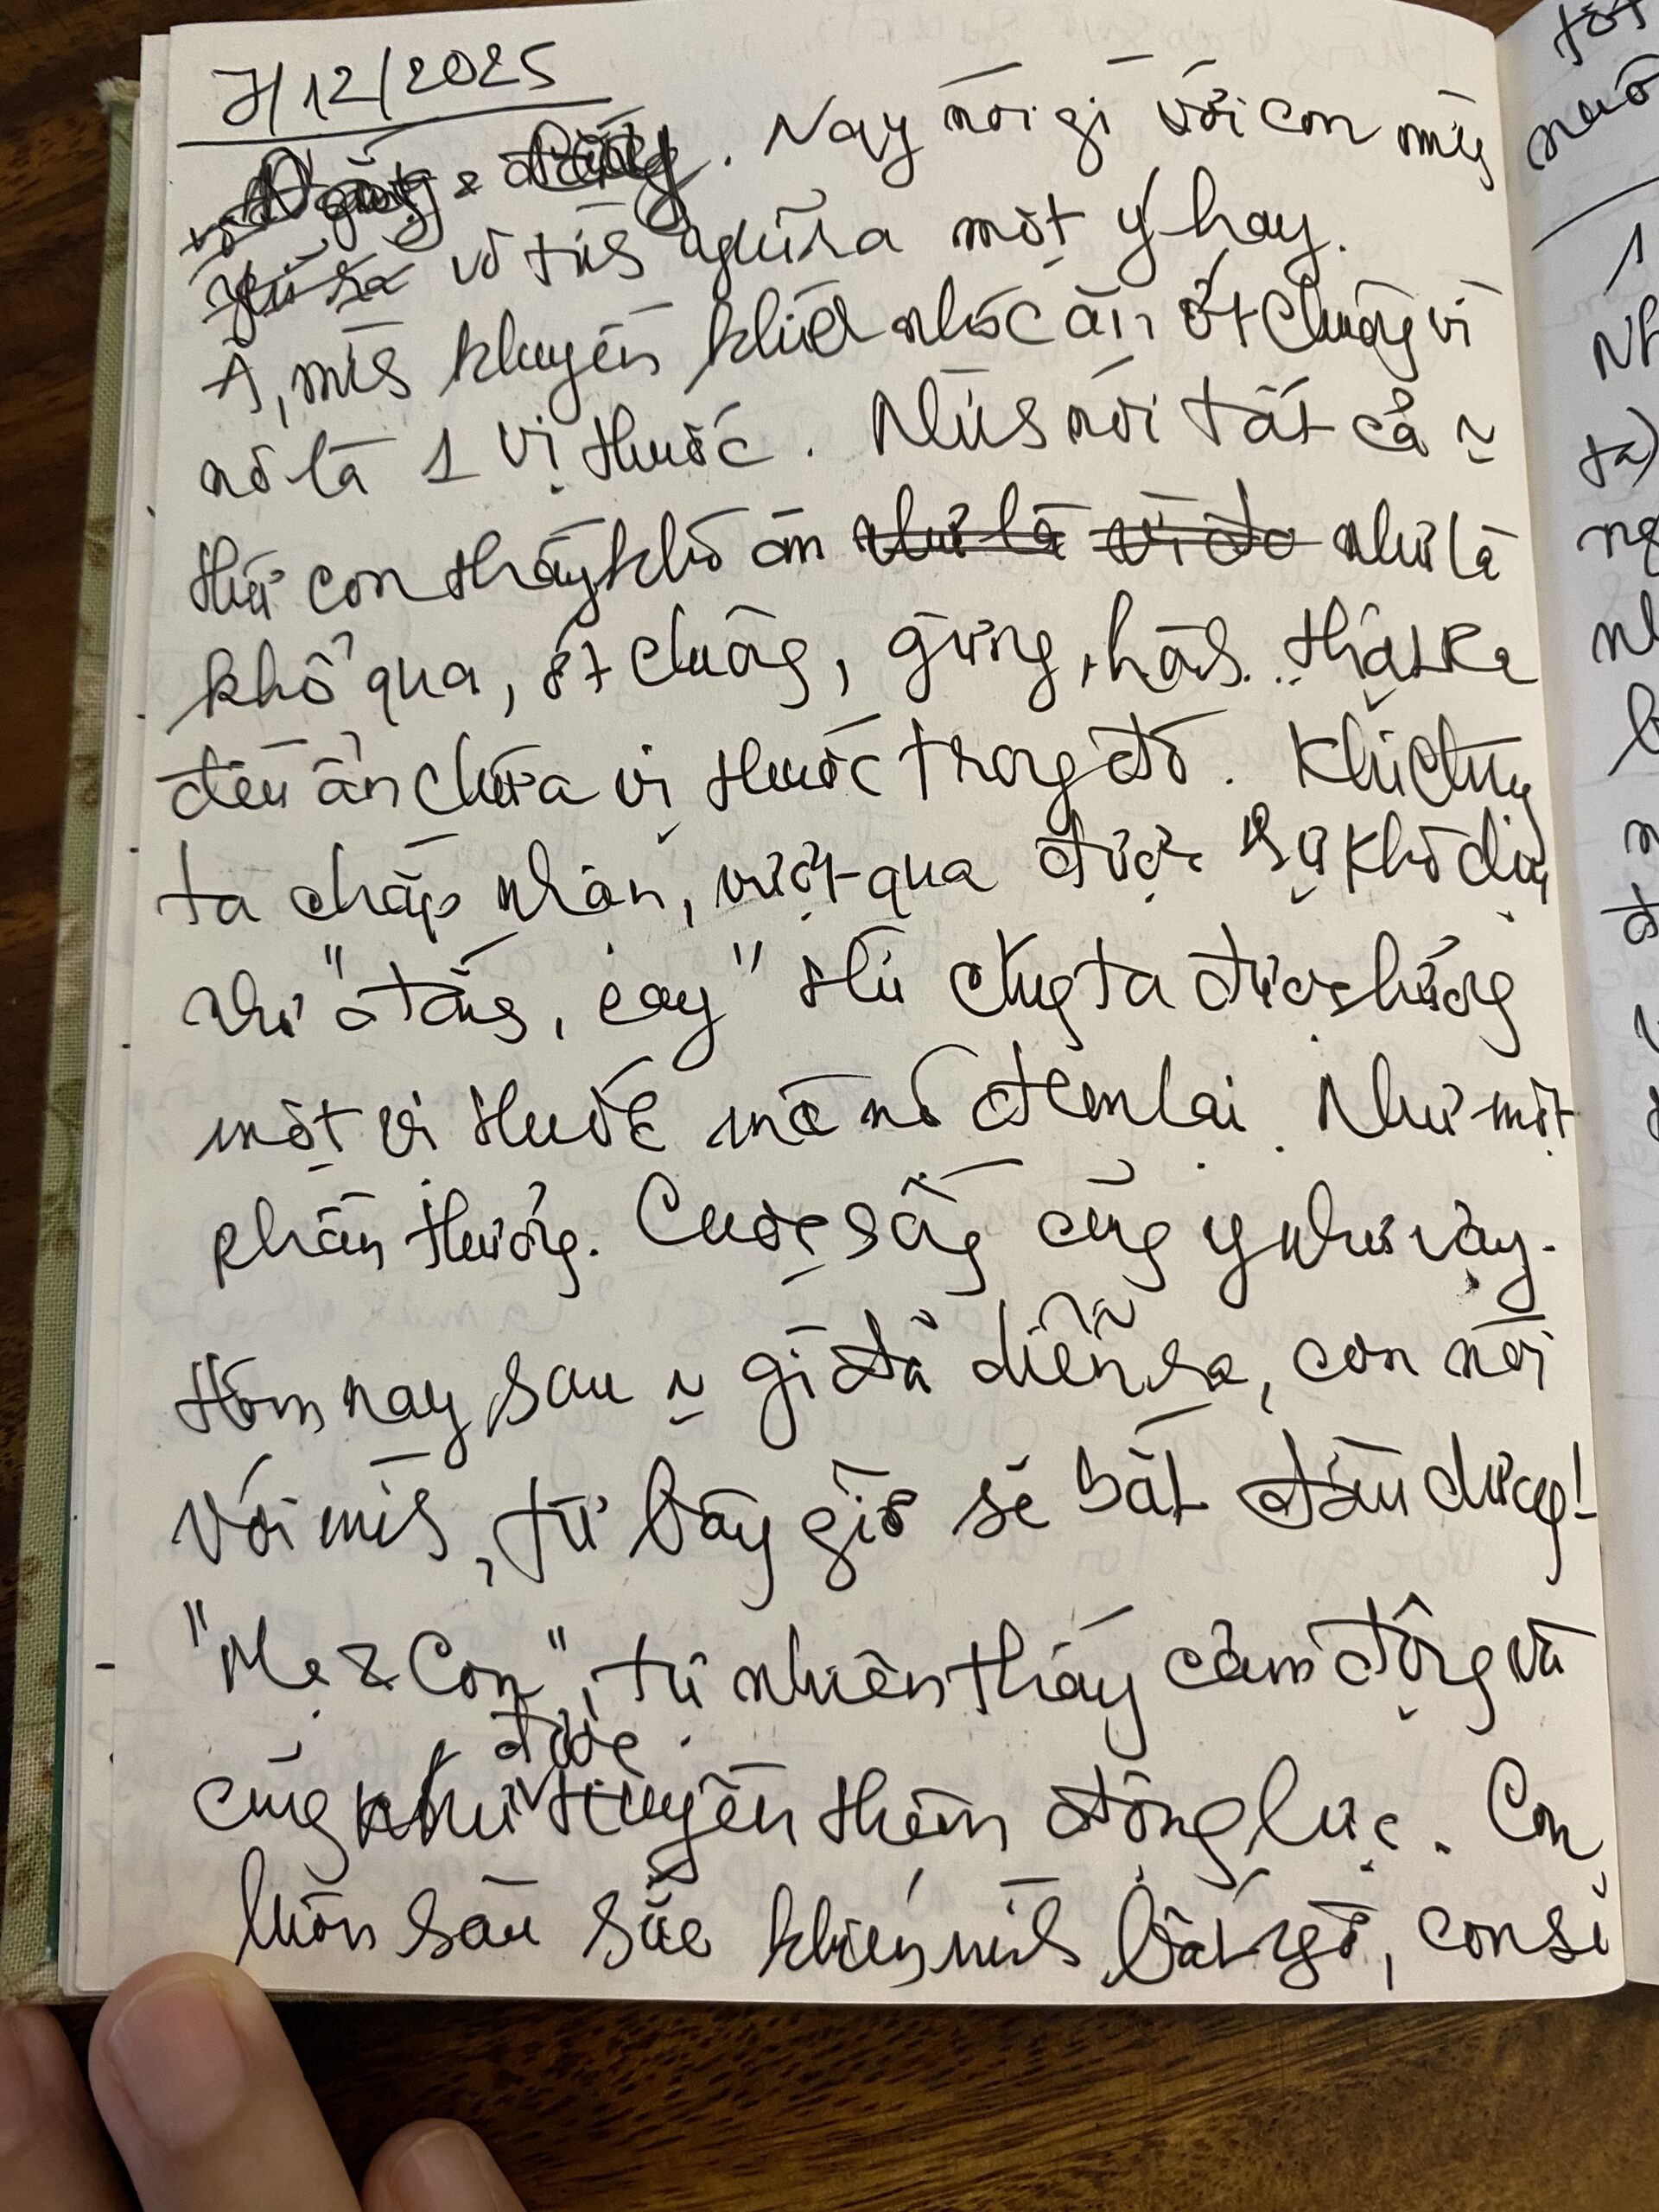 7/12/2025
. Nay nói gì với con mís
vô tư nghĩ ra một ý hay.
À, mís khuyến khích nhóc ăn ớt chuông vì
nó là 1 vị thuốc. Mís nói tất cả ~
thứ con thấy khó ăn như là vì do như là
khổ qua, ớt chuông, gừng, hành.. thật ra
đều ẩn chứa vị thuốc trong đó. Khi chúng
ta chấp nhận, vượt qua được sự khó chịu
như "đắng, cay" thì chúng ta được hưởng
một vị thuốc mà nó đem lại. Như một
phần thưởng. Cuộc sống cũng y như vậy.
Hôm nay sau ~ gì đã diễn ra, con nói
với mís, từ bây giờ sẽ bắt đầu dùng!
"Mẹ & Con", tự nhiên thấy cảm động và
cũng như được truyền thêm động lực. Con
luôn sâu sắc khiến mís bất ngờ, con sẽ